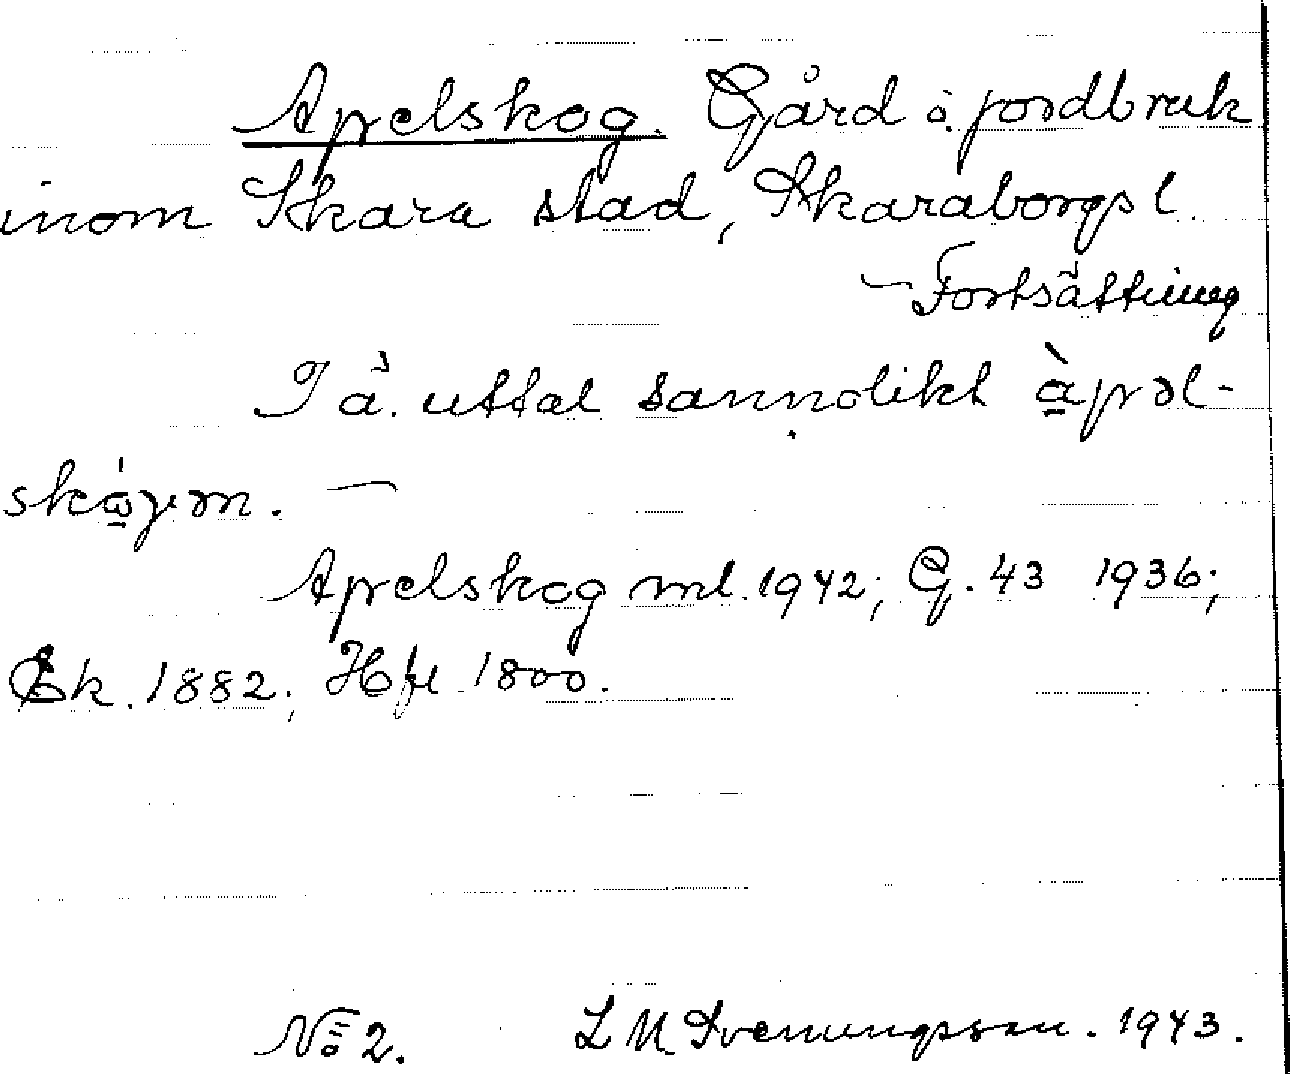 Apelskog. Gård o. jordbruk
inom Skara stad, Skaraborgs l.
— Fortsättning
I ä. uttal sannolikt àpəl-
skó̤γən. —
Apelskog ml. 1942; G. 43 1936;
Ek. 1882; Hfl 1800.
No 2. L M Svenungsson. 1943.